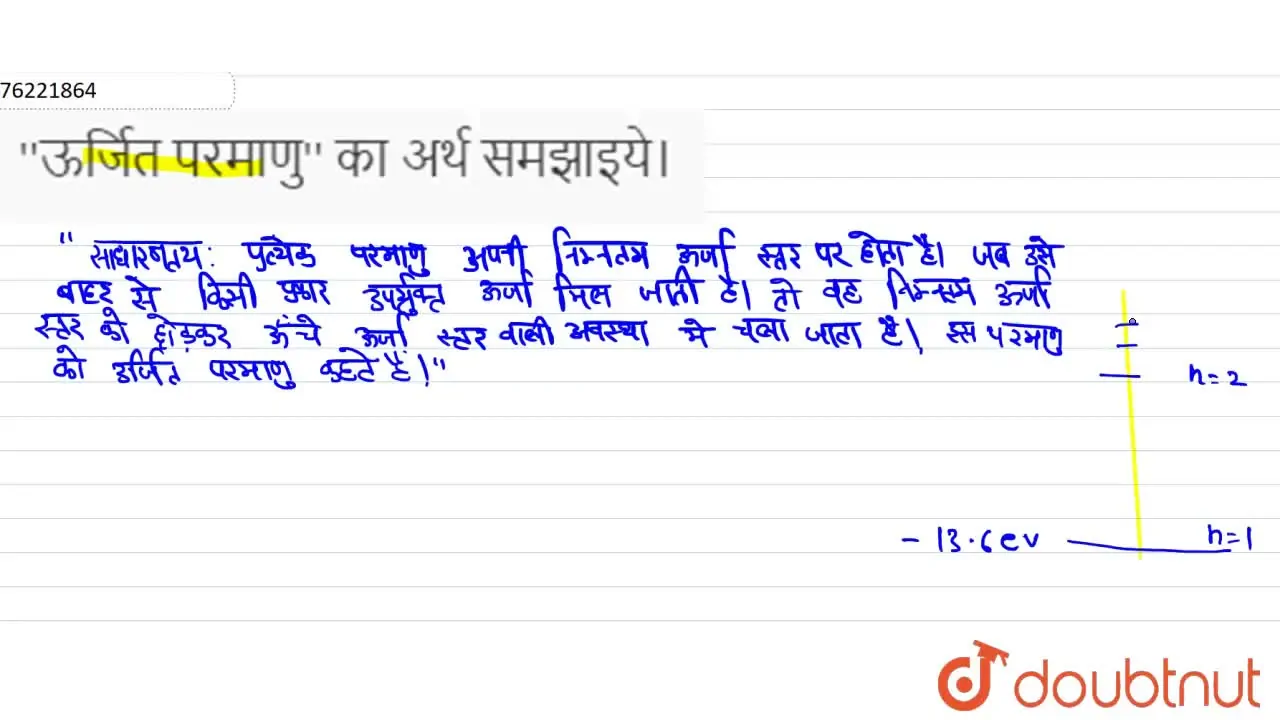 76221864
"ऊर्जित परमाणु" का अर्थ समझाइये।
" साधारणतय: प्रत्येक परमाणु अपनी निम्नतम ऊर्जा स्तर पर होता है। जब उसे
बाहर से किसी प्रकार उपर्युक्त ऊर्जा मिल जाती है। तो वह निम्नतम ऊर्जा
स्तर को छोड़कर ऊंचे ऊर्जा स्तर वाली अवस्था मे चला जाता है। इस परमाणु
को उर्जित परमाणु कहते हैं।"
n=2
- 13.6 ev n=1
doubtnut